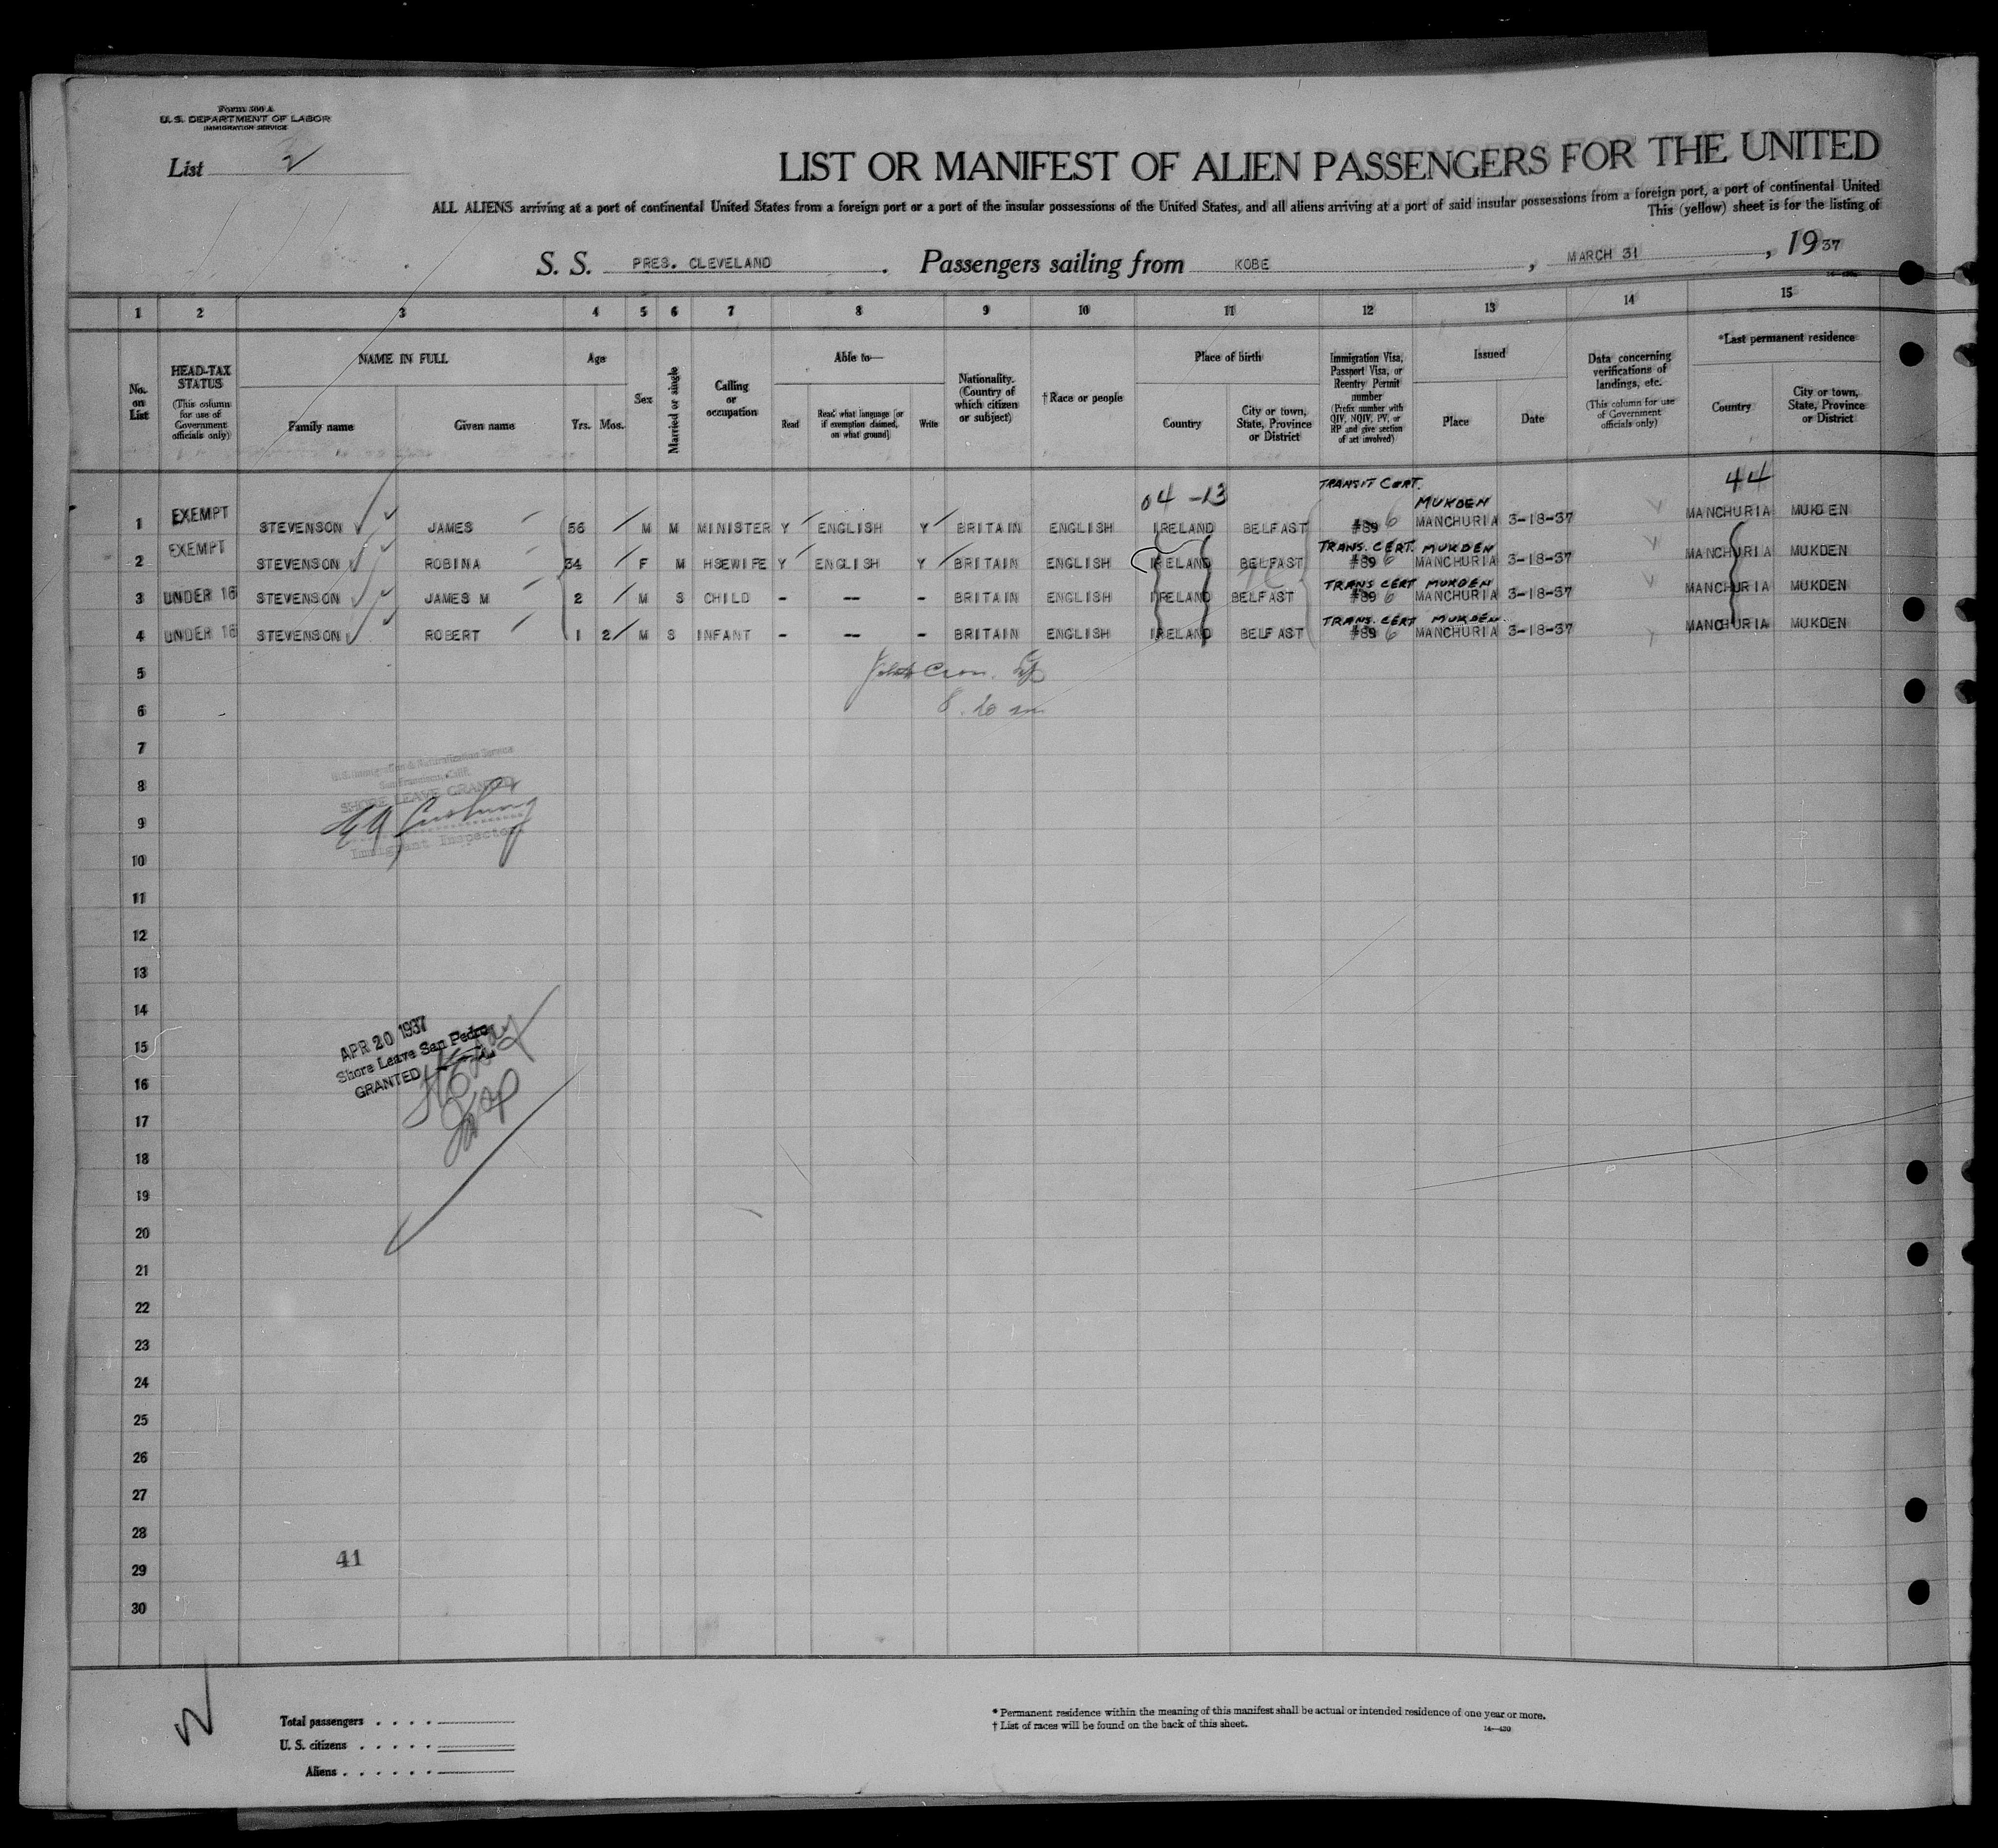 Form 500 A
U. S. DEPARTMENT OF LABOR
IMMIGRATION SERVICE
List 2
LIST OR MANIFEST OF ALIEN PASSENGERS FOR THE UNITED
ALL ALIENS arriving at a port of continental United States from a foreign port or a port of the insular possessions of the United States, and all aliens arriving at a port of said insular possessions from a foreign port, a port of continental United
This (yellow) sheet is for the listing of
S. S. PRES. CLEVELAND . Passengers sailing from KOBE , MARCH 31 , 19 37
1 2 3 4 5 6 7 8 9 10 11 12 13 14 15
No. on List
HEAD-TAX STATUS (This column for use of Government officials only)
NAME IN FULL Family name Given name
Age Yrs. Mos.
Sex
Married or single
Calling or occupation
Able to— Read Read what language [or if exemption claimed, on what ground] Write
Nationality. (Country of which citizen or subject)
† Race or people
Place of birth Country City or town, State, Province or District
Immigration Visa, Passport Visa, or Reentry Permit number (Prefix number with QIV, NQIV, PV, or RP and give section of act involved)
Issued Place Date
Data concerning verifications of landings, etc. (This column for use of Government officials only)
*Last permanent residence Country City or town, State, Province or District
04 -13 TRANSIT CERT. MUKDEN 44
1 EXEMPT STEVENSON JAMES 56 M M MINISTER Y ENGLISH Y BRITAIN ENGLISH IRELAND BELFAST #89 6 MANCHURIA 3-18-37 MANCHURIA MUKDEN
TRANS. CERT. MUKDEN
2 EXEMPT STEVENSON ROBINA 34 F M HSEWIFE Y ENGLISH Y BRITAIN ENGLISH IRELAND BELFAST #89 6 MANCHURIA 3-18-37 MANCHURIA MUKDEN
TRANS CERT MUKDEN
3 UNDER 16 STEVENSON JAMES M 2 M S CHILD - -- - BRITAIN ENGLISH IRELAND BELFAST #89 6 MANCHURIA 3-18-37 MANCHURIA MUKDEN
TRANS. CERT MUKDEN.
4 UNDER 16 STEVENSON ROBERT 1 2 M S INFANT - -- - BRITAIN ENGLISH IRELAND BELFAST #89 6 MANCHURIA 3-18-37 MANCHURIA MUKDEN
5
6
7
8
9
10
11
12
13
14
15
16
17
18
19
20
21
22
23
24
25
26
27
28
29
30
U.S. Immigration & Naturalization Service
San Francisco, Calif.
SHORE LEAVE GRANTED
Immigrant Inspector
APR 20 1937
Shore Leave San Pedro
GRANTED
41
Total passengers . . . .
U. S. citizens . . . . .
Aliens . . . . . .
* Permanent residence within the meaning of this manifest shall be actual or intended residence of one year or more.
† List of races will be found on the back of this sheet.
14—430